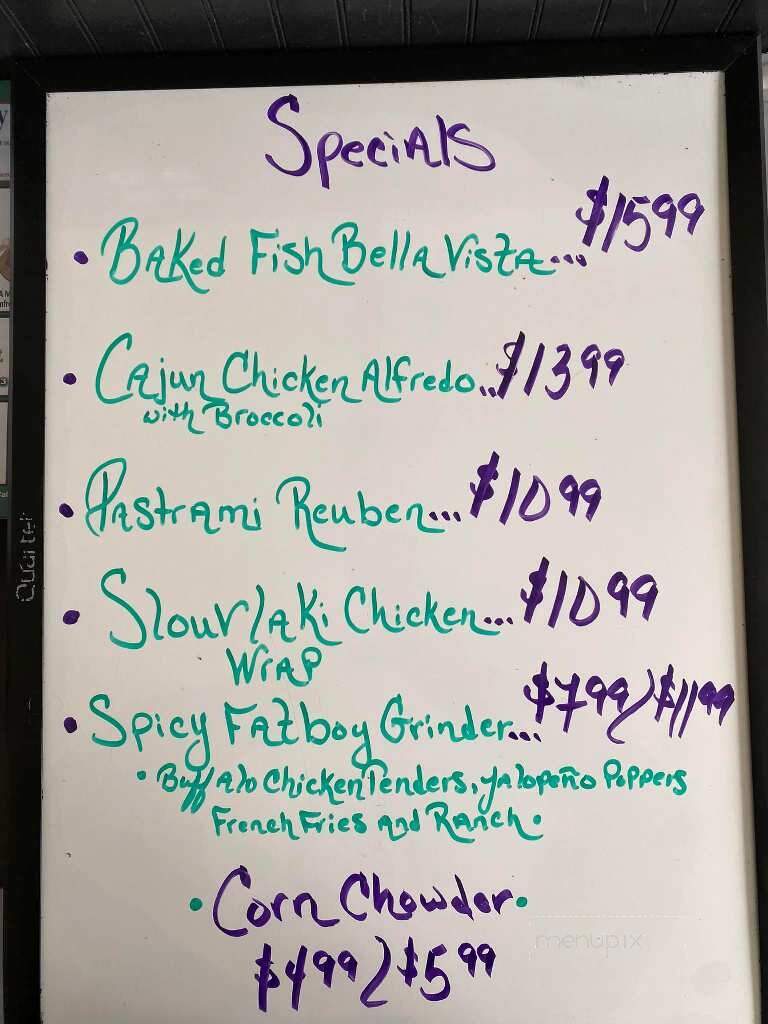 Specials
• Baked Fish Bella Vista... $15 99
• Cajun Chicken Alfredo... $13 99
with Broccoli
• Pastrami Reuben... $10 99
• Slouvlaki Chicken... $10 99
Wrap
• Spicy Fatboy Grinder... $7 99 / $11 99
• Buffalo Chicken Tenders, Jalopeño Poppers
French Fries and Ranch.
• Corn Chowder •
$4 99 / $5 99
menupix
Quartet